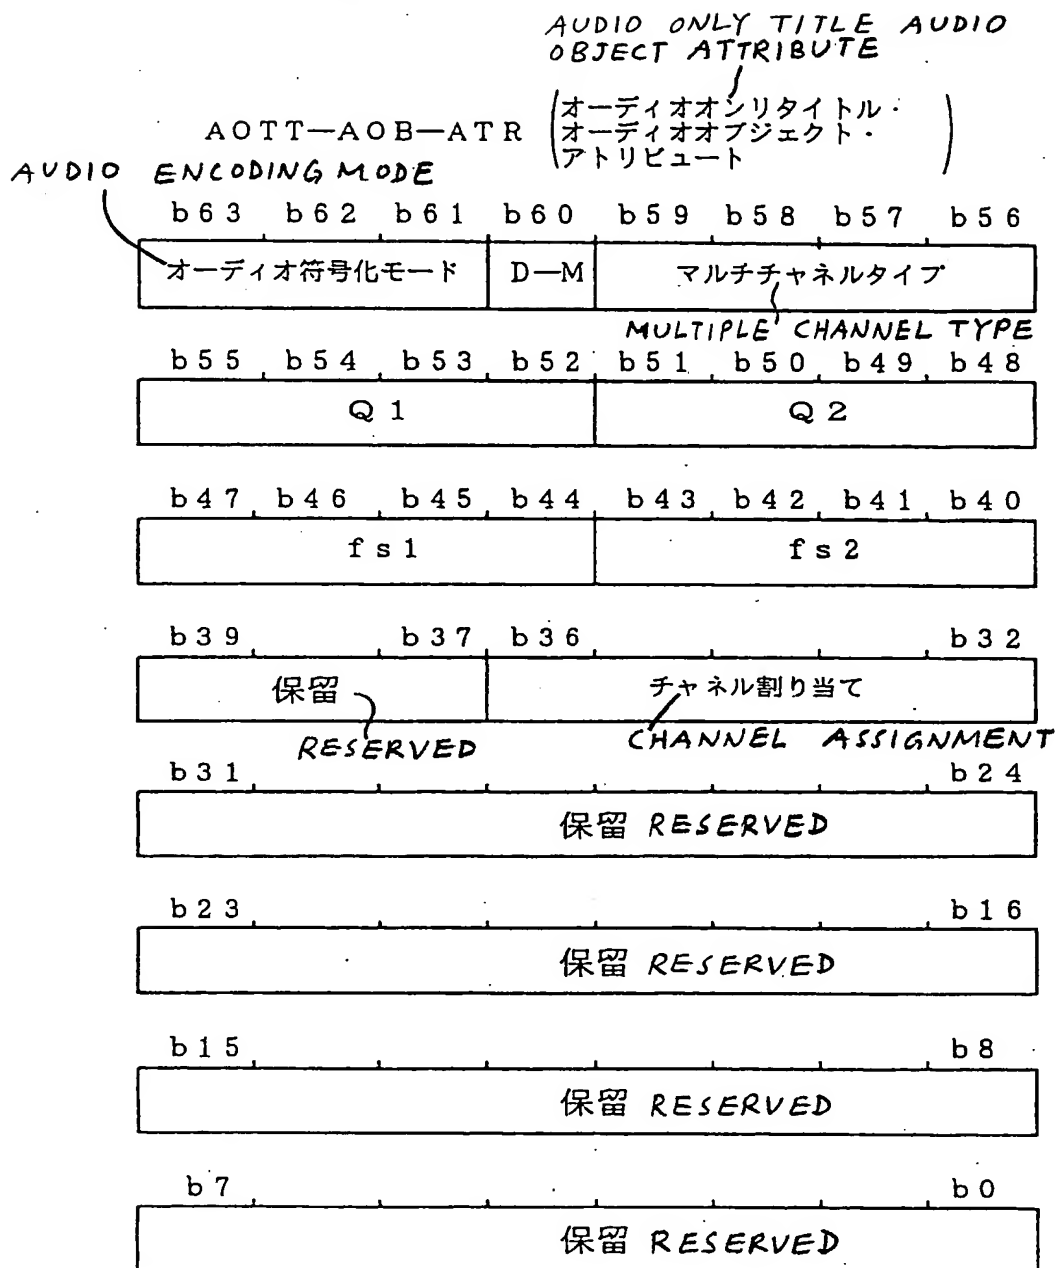 AUDIO ONLY TITLE AUDIO
OBJECT ATTRIBUTE
AOTT—AOB—ATR
(オーディオオンリタイトル・
オーディオオブジェクト・
アトリビュート)
AUDIO ENCODING MODE
b63 b62 b61 b60 b59 b58 b57 b56
オーディオ符号化モード D—M マルチチャネルタイプ
MULTIPLE CHANNEL TYPE
b55 b54 b53 b52 b51 b50 b49 b48
Q1 Q2
b47 b46 b45 b44 b43 b42 b41 b40
fs1 fs2
b39 b37 b36 b32
保留 チャネル割り当て
RESERVED CHANNEL ASSIGNMENT
b31 b24
保留 RESERVED
b23 b16
保留 RESERVED
b15 b8
保留 RESERVED
b7 b0
保留 RESERVED